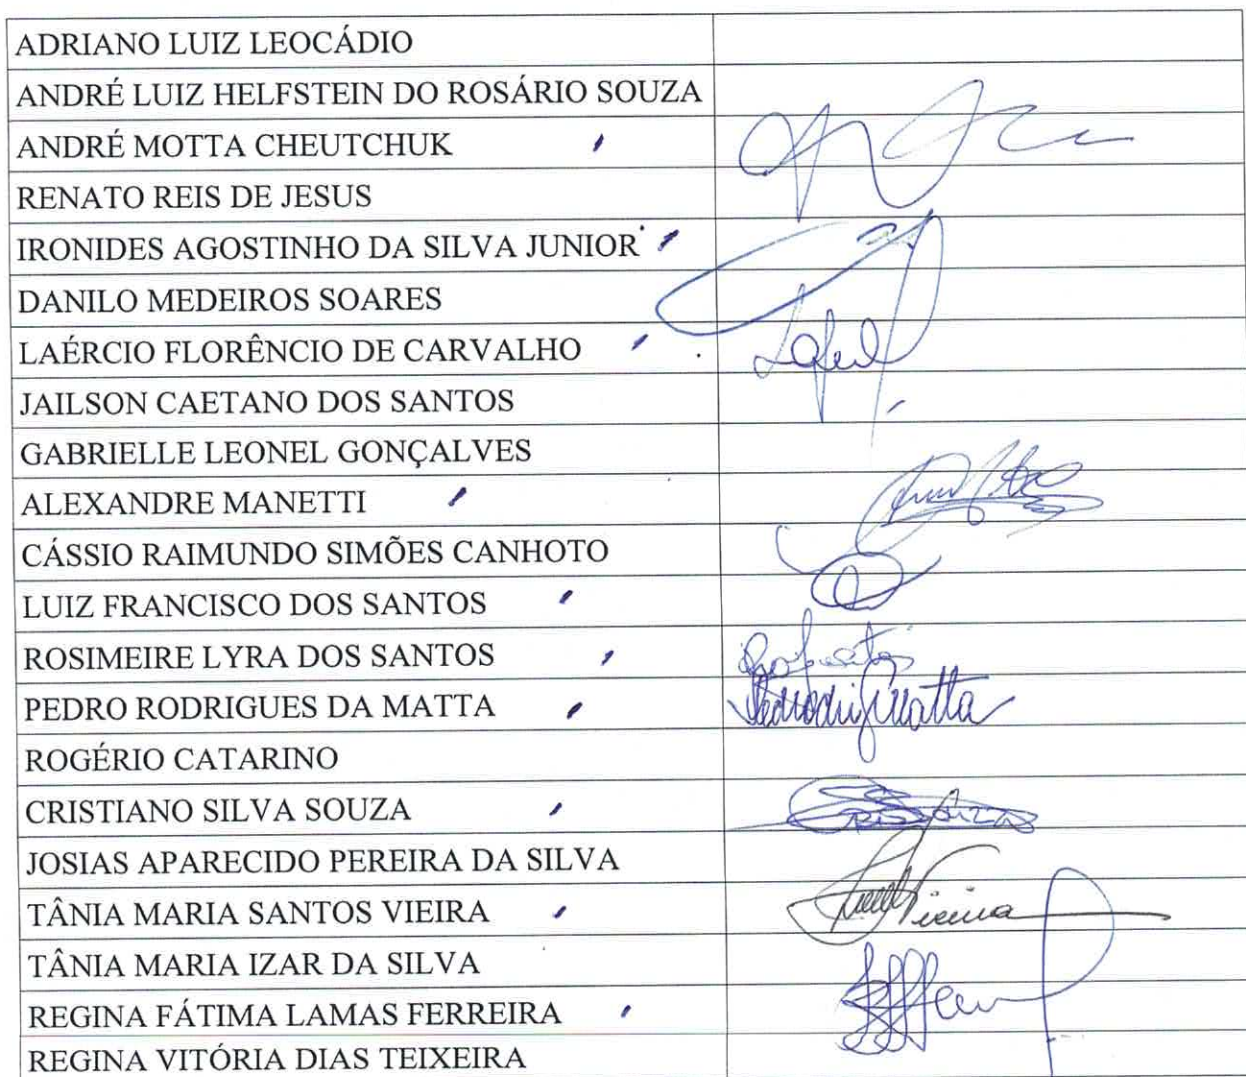 ADRIANO LUIZ LEOCÁDIO
ANDRÉ LUIZ HELFSTEIN DO ROSÁRIO SOUZA
ANDRÉ MOTTA CHEUTCHUK
RENATO REIS DE JESUS
IRONIDES AGOSTINHO DA SILVA JUNIOR
DANILO MEDEIROS SOARES
LAÉRCIO FLORÊNCIO DE CARVALHO
JAILSON CAETANO DOS SANTOS
GABRIELLE LEONEL GONÇALVES
ALEXANDRE MANETTI
CÁSSIO RAIMUNDO SIMÕES CANHOTO
LUIZ FRANCISCO DOS SANTOS
ROSIMEIRE LYRA DOS SANTOS
PEDRO RODRIGUES DA MATTA
ROGÉRIO CATARINO
CRISTIANO SILVA SOUZA
JOSIAS APARECIDO PEREIRA DA SILVA
TÂNIA MARIA SANTOS VIEIRA
TÂNIA MARIA IZAR DA SILVA
REGINA FÁTIMA LAMAS FERREIRA
REGINA VITÓRIA DIAS TEIXEIRA